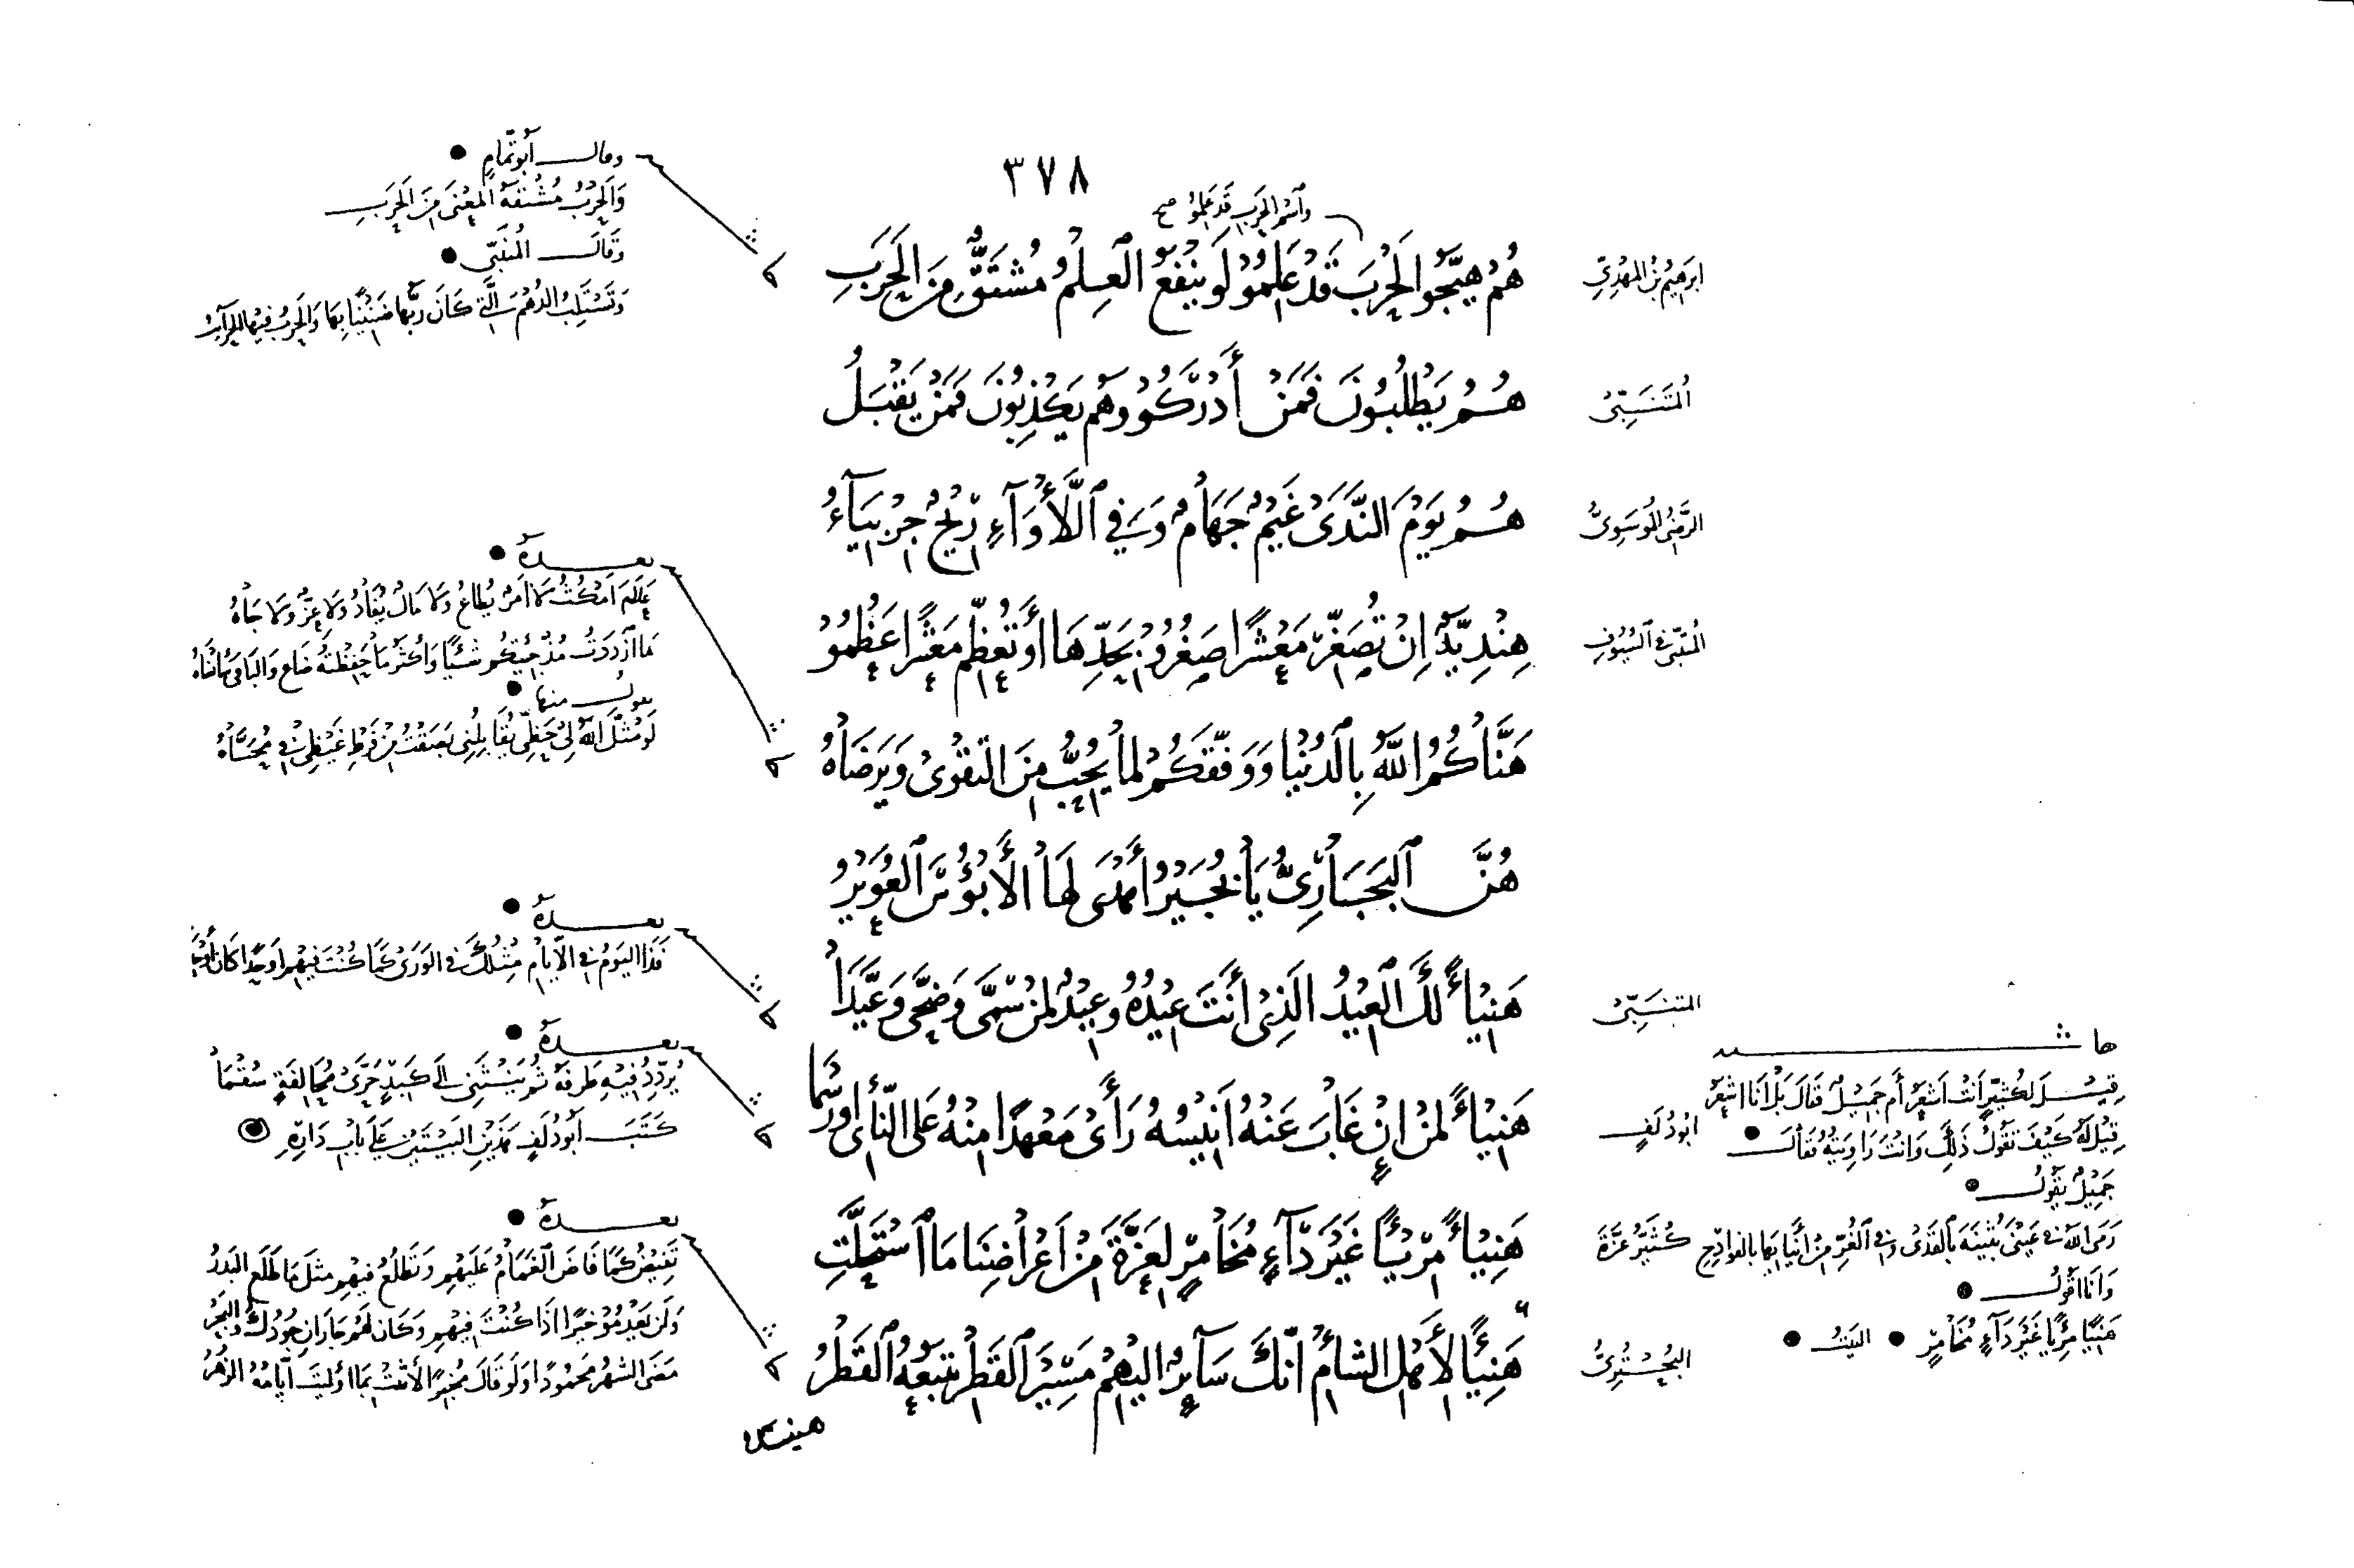 ٣٧٨
وَاسْمُ الحَرْبِ قَدْ عَلِمُوا صح
هُمْ هَيَّجُوا الحَرْبَ قَدْ عَلِمُوْا لَوْ يَنْفَعُ العِلْمُ مُشْتَقٌّ مِنَ الحَرَبِ
ابرهيم بن المهدي
هُمُ يَطْلُبُونَ فَمَنْ أَدْرَكُوْا وَهُم يَكْذِبُوْنَ فَمَنْ يَقْبَلُ
المتنبي
هُمُ يَوْمَ النَّدَى غَيْمٌ جَهَامٌ وَفِي اللَّأْوَاءِ رِيْحٌ جِرْبِيَاءُ
الرضي الموسوي
هِنْدِيَّةٌ اِنْ تُصَغِّرْ مَعْشَرًا صَغُرُوْا بِحَدِّهَا أَوْ تُعَظِّمْ مَعْشَرًا عَظُمُوْا
المتنبي في السيوف
هَنَّاكُمُ اللهُ بِالدُنْيَا وَوَفَّقَكُمْ لِمَا يُحِبُّ مِنَ التَقْوَىْ وَيَرْضَاهُ
هُنَّ البَجَارِيُّ يَا بُجَيْرُ أَهْدَى لَهَا الأَبْؤُسَ العُوَيْرُ
هَنِيْأً لَكَ العِيْدُ الَذِيْ أَنْتَ عِيْدُهُ وعِيْدٌ لِمَنْ سَمَّى وَضَحَّى وَعَيَّدَا
المتنبي
هَنِيْأً لِمَنْ اِنْ غَابَ عَنْهُ اَنِيْسُهُ رَأَىْ مَعْهَدًا مِنْهُ عَلَى النَّأْيِ اَوْ رَسْمَا
ابو دلف
هَنِيْأً مَرِيْئًا غَيْرَ دَاءٍ مُخَامِرٍ لِعَزَّةَ مِنْ اَعْرَاضِنَا مَا اسْتَحَلَّتِ
كثير عزة
هَنِيْئًا لِأَهْلِ الشَامِ اَنَّكَ سَائِرٌ اِلَيْهِمْ مَسِيْرَ القَطْرِ يَتْبَعُهُ القَطْرُ
البحتري
هنيئا
وقال أبو تمام
وَالحَرْبُ مُشْتَقَّةُ المَعْنَى مِنَ الحَرَبِ
وَقَالَ المتنبي
وَتَسْتَلِبُ الدُهْمَ الَّتِي كَانَ رَبُّهَا ضَنِيْنًا بِهَا وَالحَرْبُ فِيْهَا
بعده
مَا ازْدَدْتُ مُذْ جِئْتُكُم شَيْئًا وَاَكْثَرُ مَا حَفِظْتُهُ ضَاعَ وَالبَاقِي
يقول منها
لَوْ مُثِّلَ اللهُ لِي حَظِّي يُقَابِلُنِي بَصَقْتُ مِنْ فَرْطِ غَيْظِي فِي مُحَيَّاهُ
بعده
فَذَا اليَوْمُ فِي الأَيَّامِ مِثْلُكَ فِي الوَرَى كَمَا كُنْتَ فِيْهِمْ اَوْحَدًا كَانَ أَوْحَدَا
بعده
يُرَدِّدُ فِيْهِ طَرْفَهُ ثُمَّ يَنْثَنِي اِلَى كَبِدٍ حَرَّى مُحَالِفَةٍ سُقْمَا
كَتَبَ أَبُو دُلَفٍ هَذَيْنِ البَيْتَيْنِ عَلَى بَابِ دَارِهِ
بعده
تَفِيْضُ كَمَا فَاضَ الغَمَامُ عَلَيْهِمِ وَتَطْلُعُ فِيْهِمِ مِثْلَ مَا طَلَعَ البَدْرُ
وَلَنْ يَعْدِمُوْا خَيْرًا اِذَا كُنْتَ فِيْهِمِ وَكَانَ لَهُمْ جَارَانِ جُوْدُكَ وَالبَحْرُ
مَضَى الشَهْرُ مَحْمُوْدًا وَلَوْ قَالَ مُخْبِرًا لَأَثْنَى بِمَا اَوْلَيْتَ اَيَّامُهُ الزُهْرُ
حاشية
قِيْلَ لِكُثَيِّرٍ اَنْتَ اَشْعَرُ أَم جَمِيْلٌ قَالَ بَلْ اَنَا اشْعَرُ
قِيْلَ لَهُ كَيْفَ تَقُوْلُ ذَلِكَ وَاَنْتَ رَاوِيَتُهُ فَقَالَ
جَمِيْلٌ يقول
رَمَى اللهُ فِي عَيْنَيْ بُثَيْنَةَ بِالقَذَى وَفِي الغُرِّ مِنْ اَنْيَابِهَا بِالقَوَادِحِ
وَاَنَا اقُوْلُ
هَنِيْئًا مَرِيْئًا غَيْرَ دَاءٍ مُخَامِرٍ البيت